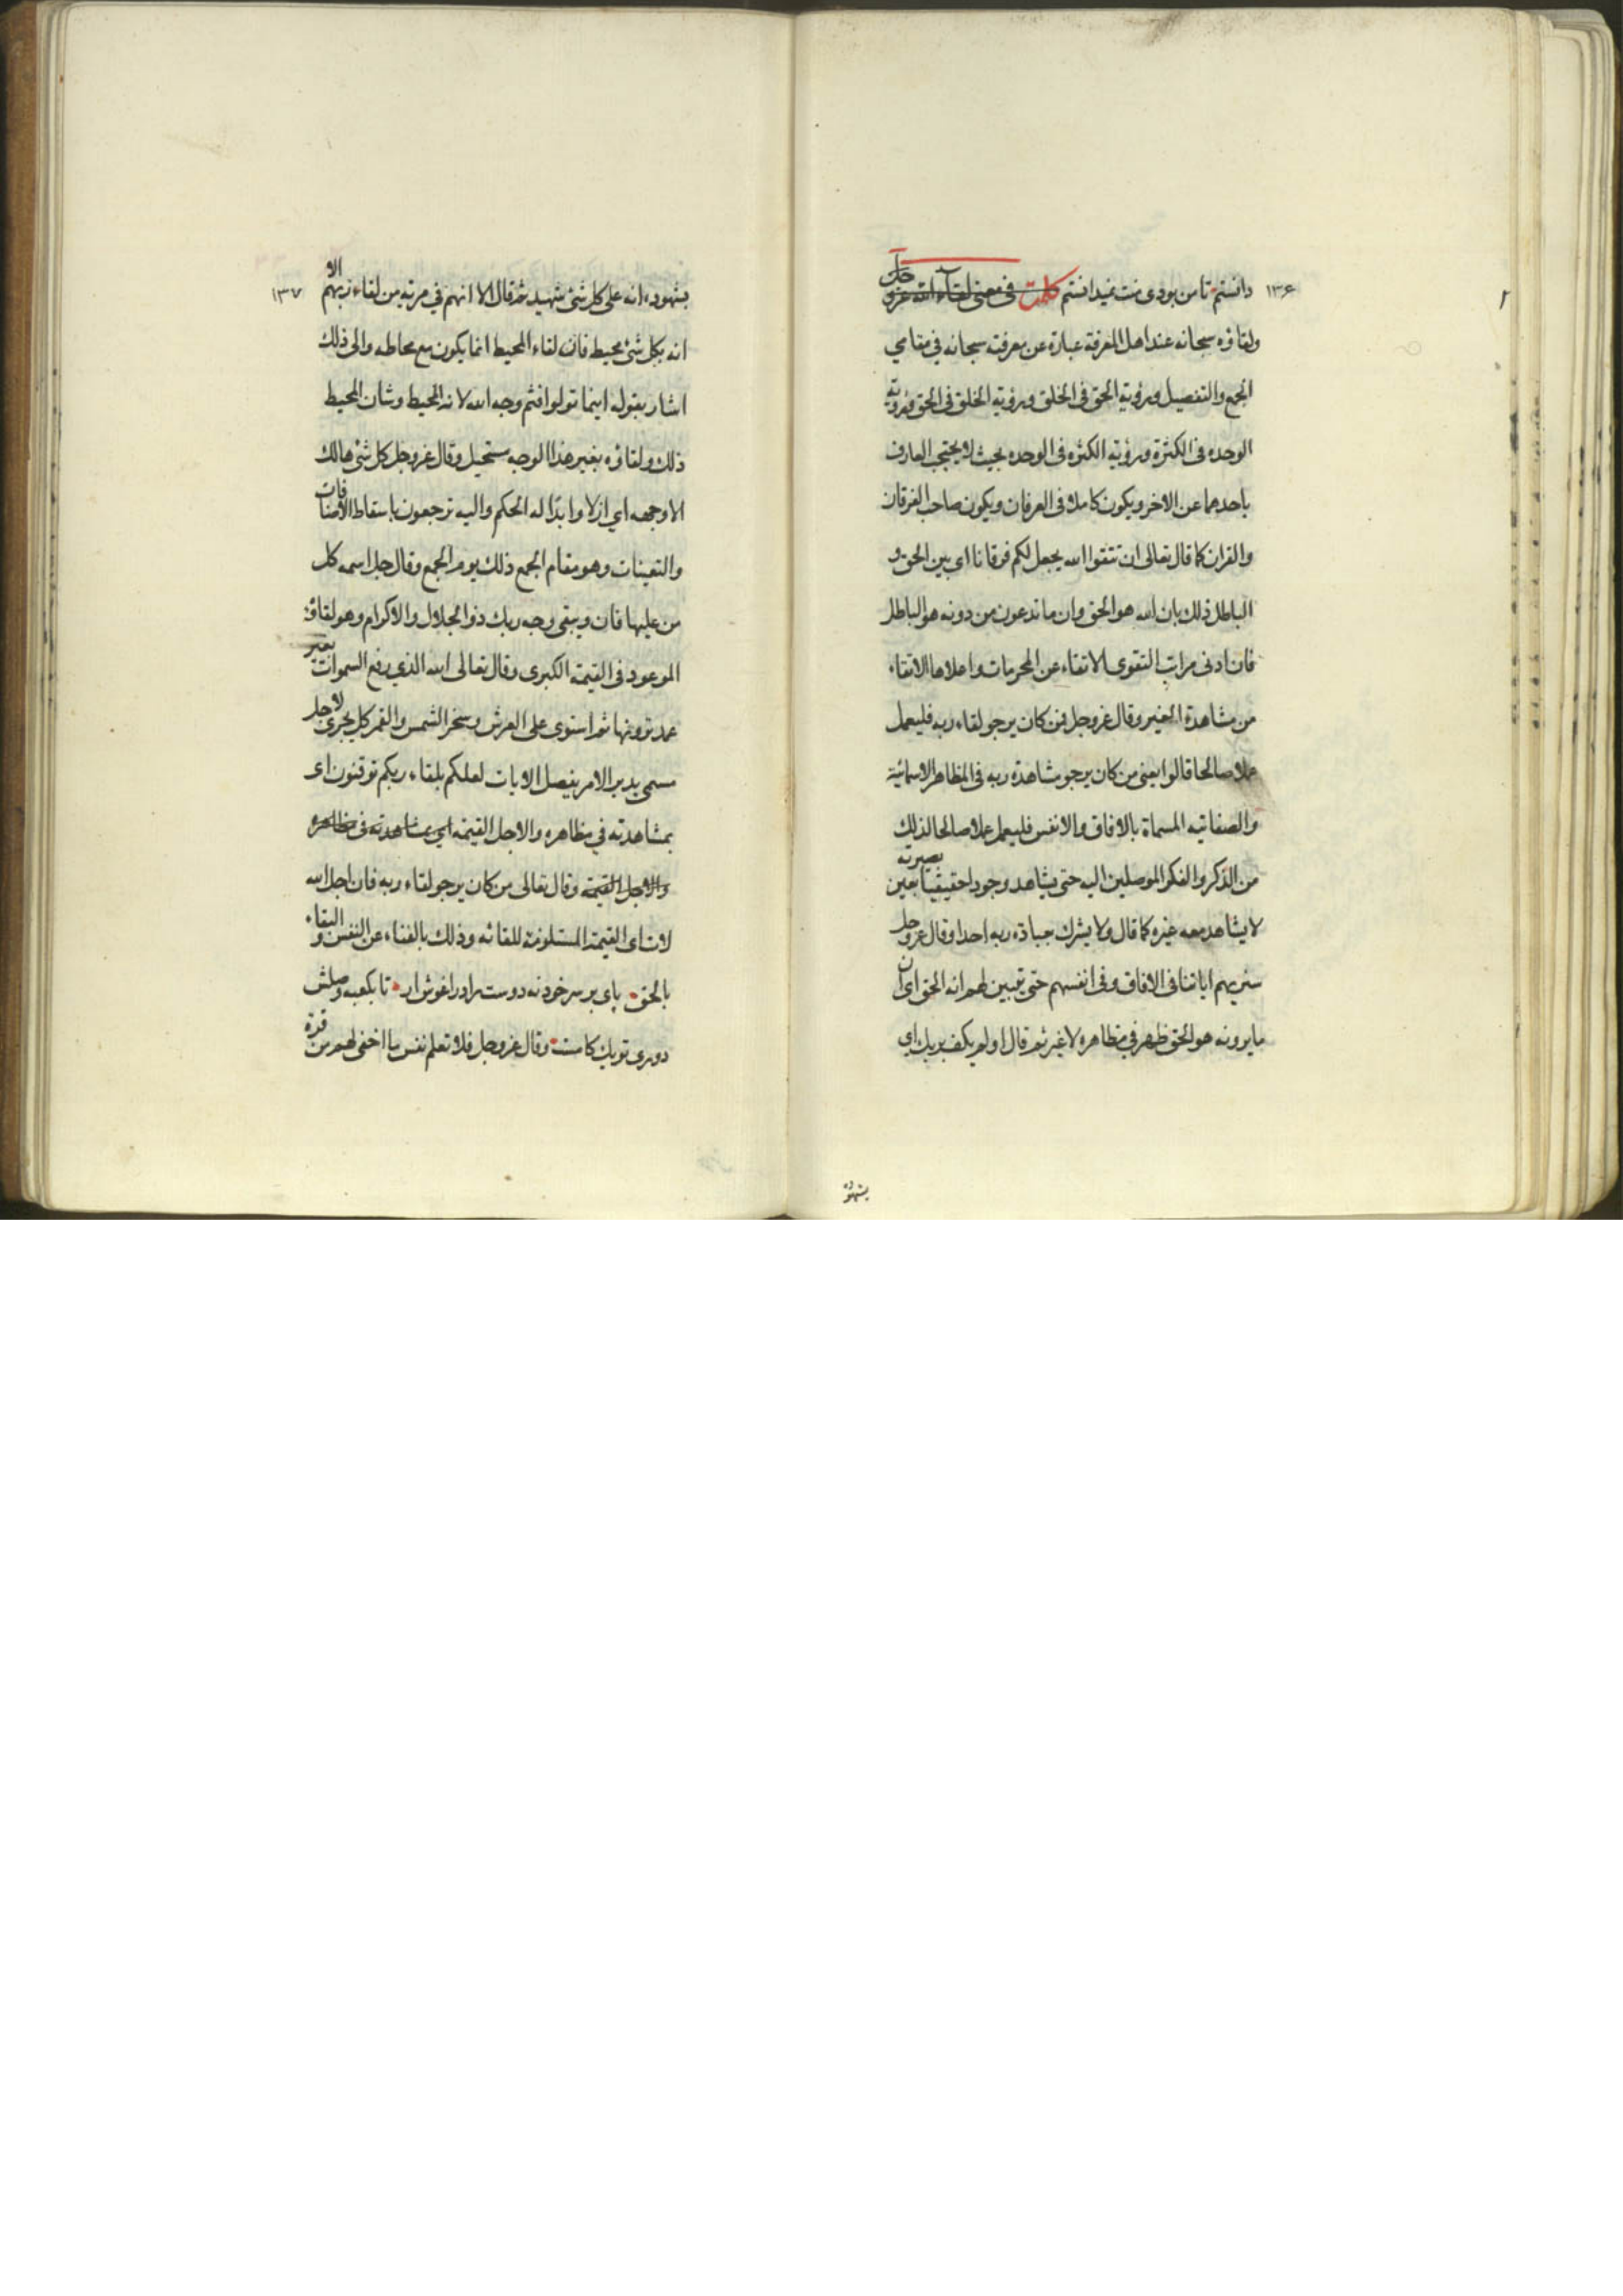 ١٣۶
دانستم تا من بودی منت نمیدانستم كلمة فی معنی لقاء الله عزو جل
ولقاؤه سبحانه عند اهل المعرفة عبارة عن معرفته سبحانه في مقامي
الجمع والتفصيل ورؤية الحق فى الخلق ورؤية الخلق فى الحق ورؤية
الوحده فى الكثرة ورؤية الكثره فى الوحده بحيث لا يحتجب العارف
باحدهما عن الاخر ويكون كاملا فى العرفان ويكون صاحب الفرقان
والقران كما قال تعالى ان تتقوا الله يجعل لكم فرقانا اى بين الحق و
الباطل ذلك بان الله هو الحق وان ما تدعون من دونه هو الباطل
فان ادنى مراتب التقوى الاتقاء عن المحرمات واعلاها الاتقاء
من مشاهدة الغير وقال عزوجل فمن كان يرجو لقاء ربه فليعمل
عملا صالحا قالوا يعنى من كان يرجو مشاهدة ربه فى المظاهر الاسمائية
والصفاتيه المسماة بالافاق والانفس فليعمل عملا صالحا لذلك
من الذكر والفكر الموصلين اليه حتى يشاهد وجودا حقيقيا بعين بصيرته
لا يشاهد معه غيره كما قال ولا يشرك بعبادة ربه احدا وقال عزو جل
سنريهم اياتنا فى الافاق وفى انفسهم حتى يتبين لهم انه الحق اى ان
ما يرونه هو الحق ظهر في مظاهره لا غير ثم قال اولم يكف بربك اي
بشهوده
١٣٧
بشهوده انه على كل شئ شهيد ثم قال الا انهم في مرية من لقاء ربهم الا
انه بكل شئ محيط فان لقاء المحيط انما يكون مع محاطه والى ذلك
اشار بقوله اينما تولوا فثم وجه الله لانه المحيط وشان المحيط
ذلك ولقاؤه بغير هذا الوجه مستحيل وقال عزوجل كل شئ هالك
الا وجهه اي ازلا وابدا له الحكم واليه ترجعون باسقاط الاضافات
والتعينات وهو مقام الجمع ذلك يوم الجمع وقال جل اسمه كل
من عليها فان ويبقى وجه ربك ذو الجلال والاكرام وهو لقاؤه
الموعود فى القيمة الكبرى وقال تعالى الله الذي رفع السموات بغير
عمد ترونها ثم استوى على العرش وسخر الشمس والقمر كل يجرى لاجل
مسمى يدبر الامر يفصل الايات لعلكم بلقاء ربكم توقنون اى
بمشاهدته في مظاهره والاجل القيمة اي بمشاهدته فى مظاهره
والاجل القيمة وقال تعالى من كان يرجو لقاء ربه فان اجل الله
لات اى القيمة المستلزمة للقائه وذلك بالفناء عن النفس و البقاء
بالحق پاى بر سر خود نه دوست را در اغوش ار تا بكعبه وصلش
دورى تو يك كامست وقال عزوجل فلا تعلم نفس ما اخفى لهم من قرة